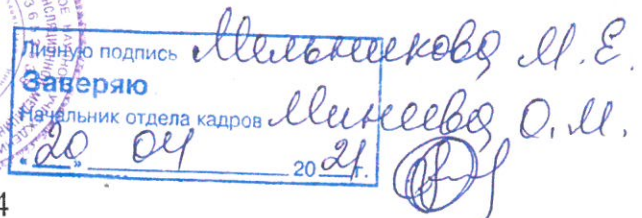 Личную подпись Мельникова М.Е.
Заверяю
Начальник отдела кадров Минеева О.М.
"20" 04 2021г.
4